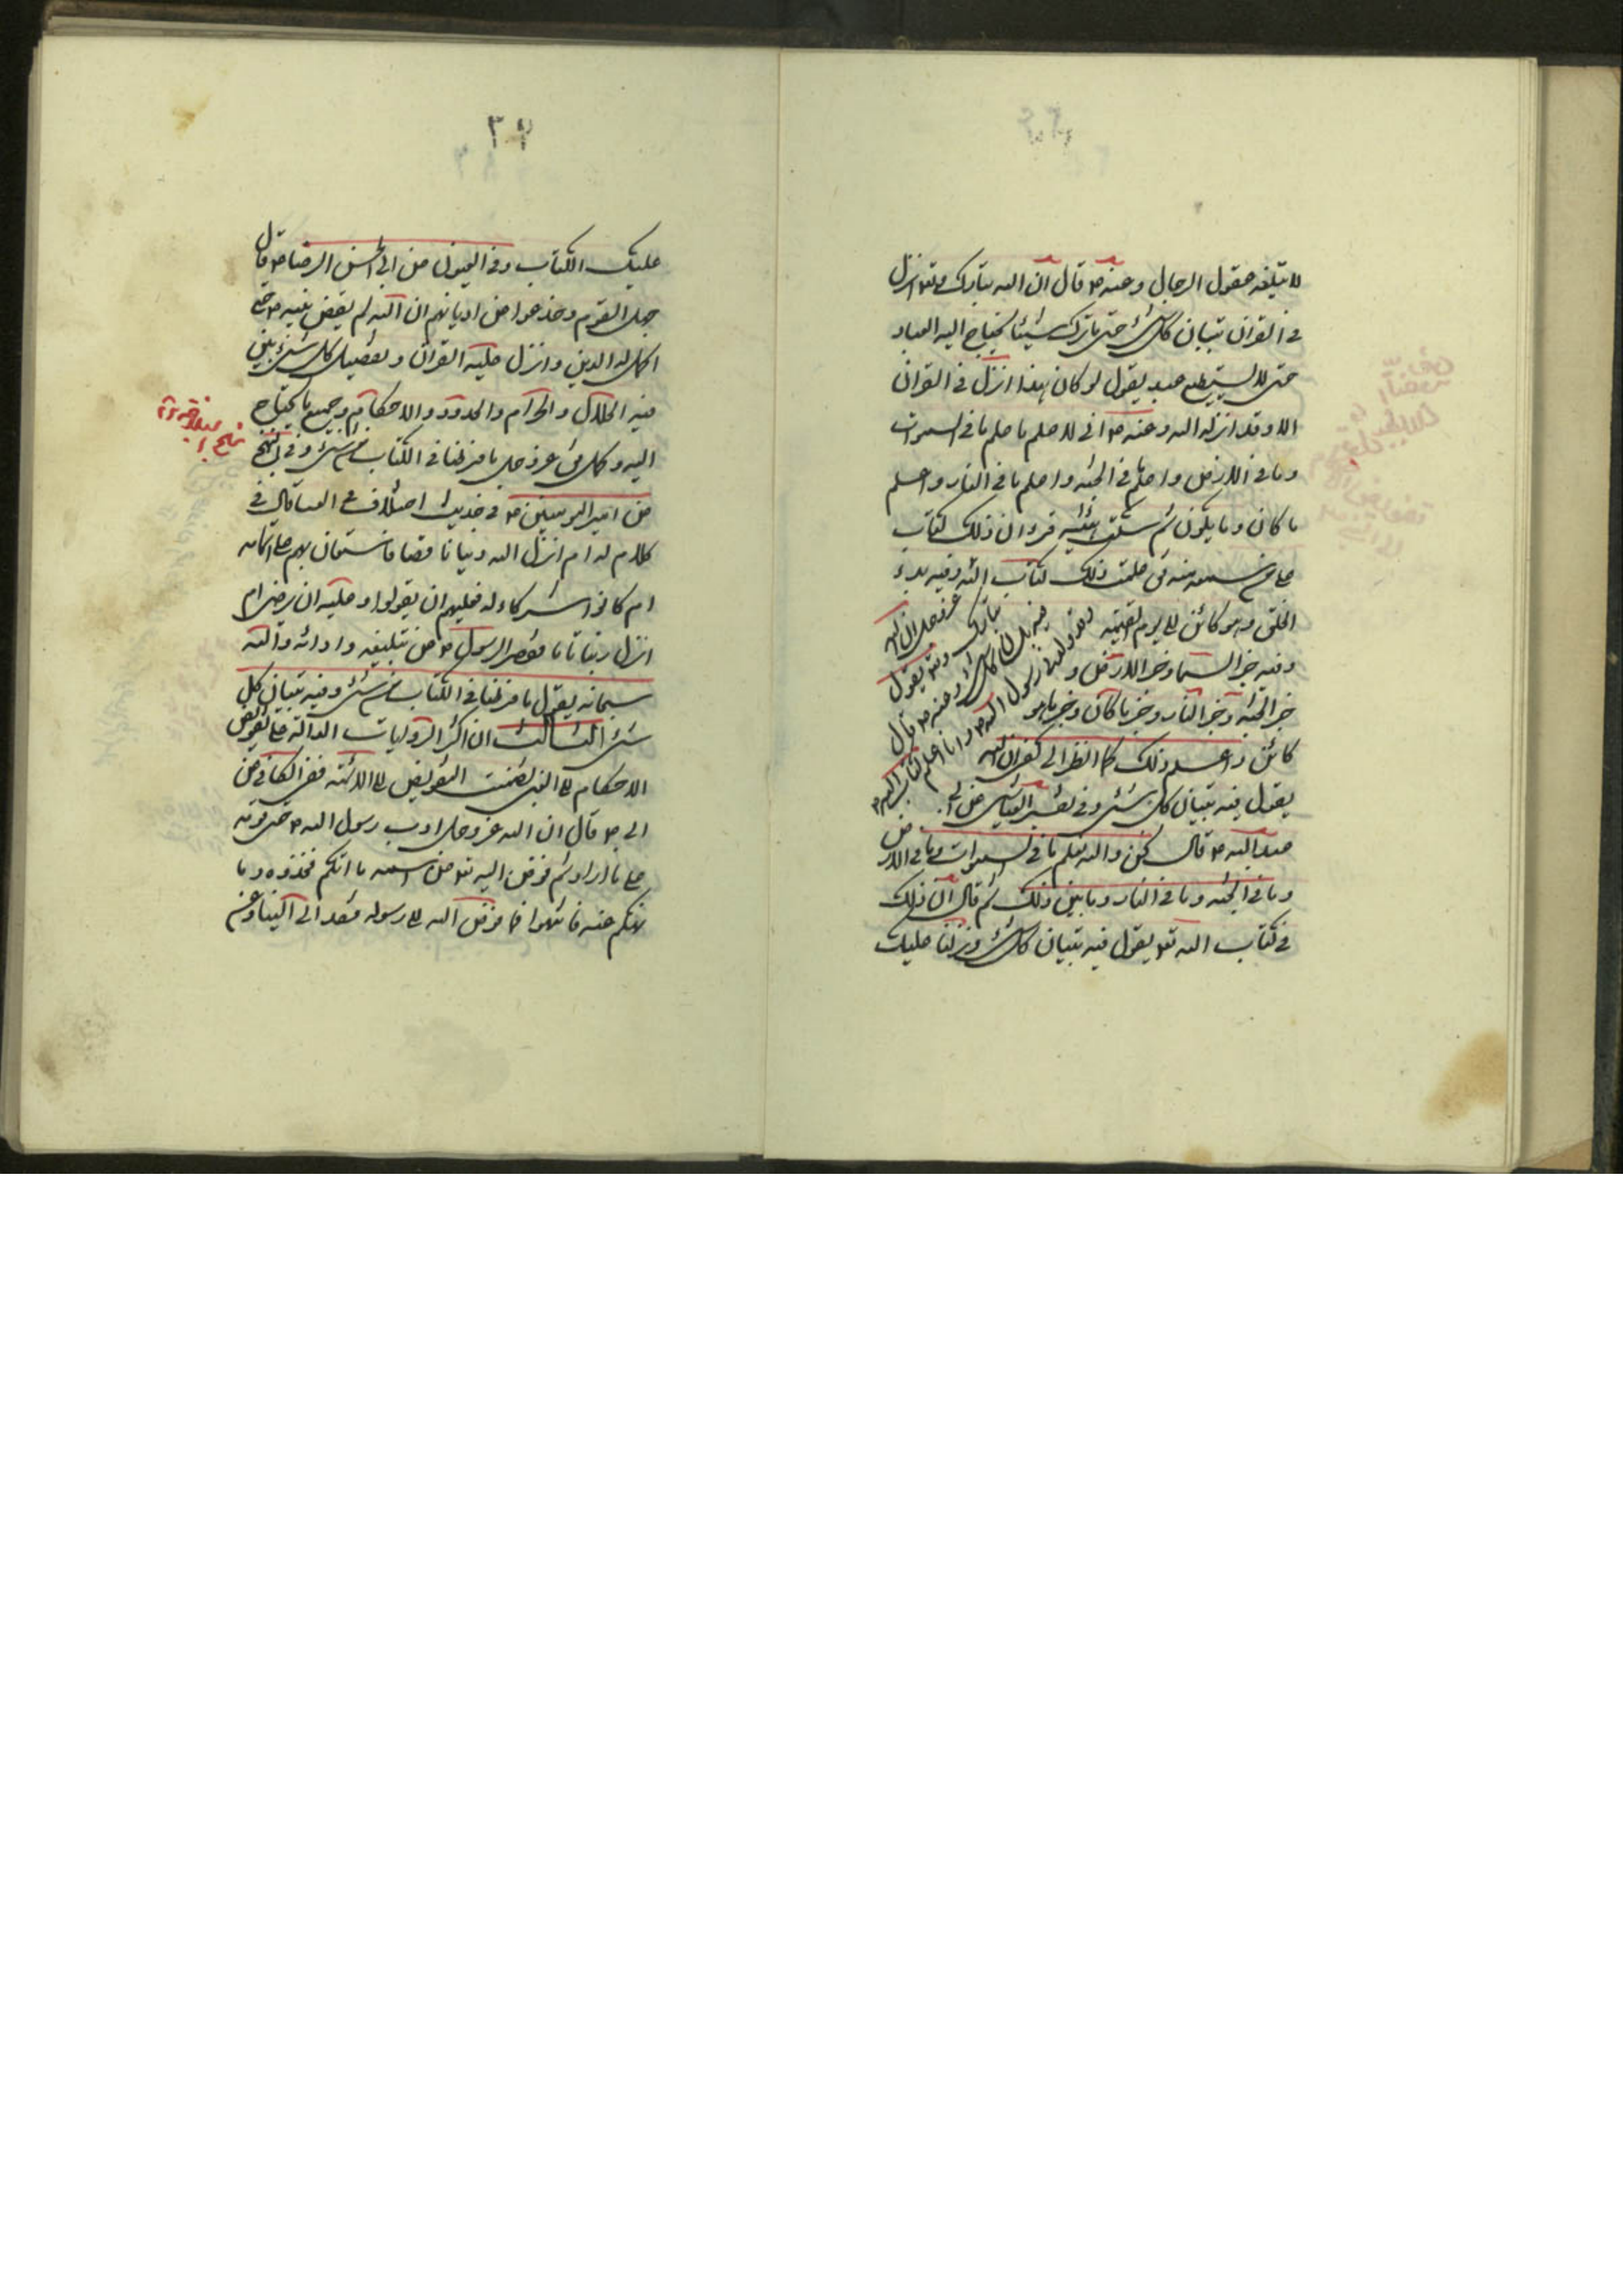 لا تبلغه عقول الرجال وعنه ع قال ان الله تبارك وتعالى انزل
في القران تبيان كل شئ حتى ما ترك شيئا يحتاج اليه العباد
حتى لا يستطيع عبد يقول لو كان هذا انزل في القران
الا وقد انزله الله وعنه ع انى لاعلم ما علم ما في السموات
وما في الارض واعلم ما في الجنة واعلم ما في النار واعلم
ما كان وما يكون ثم سكت هنيئة فرأى ان ذلك كبر
على من سمعه منه فق علمت ذلك كتاب الله
عز وجل ان الله
تبارك وتعالى يقول
فيه تبيان كل شئ وعنه ع قال
قد ولدنى رسول الله ص وانا اعلم كتاب الله
وفيه بدء
الخلق وما هو كائن الى يوم القيمة
وفيه خبر السماء وخبر الارض و
خبر الجنة وخبر النار وخبر ما كان وخبر ما هو
كائن واعلم ذلك كما انظر الى كفى ان الله
يقول فيه تبيان كل شئ وفي تفسير العياشى عن ابى
عبد الله ع قال نحن والله نعلم ما في السموات وما في الارض
وما في الجنة وما في النار وما بين ذلك ثم قال ان ذلك
في كتاب الله تعالى يقول فيه تبيان كل شئ ونزلنا عليك
٣٢
عليك الكتاب وفي العيون عن ابى الحسن الرضا ع قال
جهل القوم وخدعوا عن اديانهم ان الله لم يقبض نبيه ص حتى
اكمل له الدين وانزل عليه القران وتفصيل كل شئ بين
فيه الحلال والحرام والحدود والاحكام وجميع ما يحتاج
اليه وكمل فق عز وجل ما فرطنا في الكتاب من شئ وفي النهج
عن امير المؤمنين ع في حديث اختلاف في الفتيا قال في
كلام له ام انزل الله دينا ناقصا فاستعان بهم على اتمامه
ام كانوا شركاء له فعليهم ان يقولوا وعليه ان يرضى ام
انزل دينا تاما فقصر الرسول ص عن تبليغه وادائه والله
سبحانه يقول ما فرطنا في الكتاب من شئ وفيه تبيان كل
شئ الثالث ان اكثر الروايات الدالة على تفويض
الاحكام الى النبى تضمنت التفويض الى الائمة ففي الكافى عن
ابى ع قال ان الله عز وجل ادب رسول الله ص حتى قومه
على ما اراد ثم فوض اليه فقال عز اسمه ما اتيكم فخذوه وما
نهيكم عنه فانتهوا فما فوض الله الى رسوله فقد الى الينا وعن